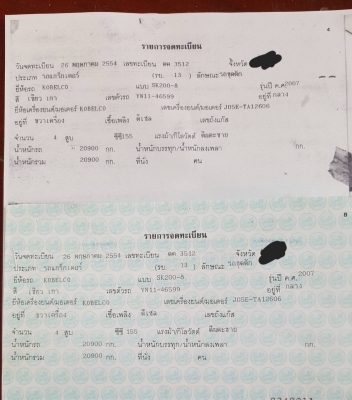 รายการจดทะเบียน
วันจดทะเบียน 26 พฤษภาคม 2554 เลขทะเบียน ตค 3512 จังหวัด
ประเภท รถแทร็กเตอร์ (รย. 13 ) ลักษณะ รถขุดตัก
ยี่ห้อรถ KOBELCO แบบ SK200-8 รุ่นปี ค.ศ. 2007
สี เขียว เทา เลขตัวรถ YN11-46599 อยู่ที่ กลาง
ยี่ห้อเครื่องยนต์มอเตอร์ KOBELCO เลขเครื่องยนต์มอเตอร์ J05E-TA12606
อยู่ที่ ขวาเครื่อง เชื้อเพลิง ดีเซล เลขถังแก๊ส
จำนวน 4 สูบ ซีซี 155 แรงม้า/กิโลวัตต์ ตีนตะขาบ
น้ำหนักรถ 20900 กก. น้ำหนักบรรทุก/น้ำหนักลงเพลา กก.
น้ำหนักรวม 20900 กก. ที่นั่ง คน
รายการจดทะเบียน
วันจดทะเบียน 26 พฤษภาคม 2554 เลขทะเบียน ตค 3512 จังหวัด
ประเภท รถแทร็กเตอร์ (รย. 13 ) ลักษณะ รถขุดตัก
ยี่ห้อรถ KOBELCO แบบ SK200-8 รุ่นปี ค.ศ. 2007
สี เขียว เทา เลขตัวรถ YN11-46599 อยู่ที่ กลาง
ยี่ห้อเครื่องยนต์มอเตอร์ KOBELCO เลขเครื่องยนต์มอเตอร์ J05E-TA12606
อยู่ที่ ขวาเครื่อง เชื้อเพลิง ดีเซล เลขถังแก๊ส
จำนวน 4 สูบ ซีซี 155 แรงม้า/กิโลวัตต์ ตีนตะขาบ
น้ำหนักรถ 20900 กก. น้ำหนักบรรทุก/น้ำหนักลงเพลา กก.
น้ำหนักรวม 20900 กก. ที่นั่ง คน